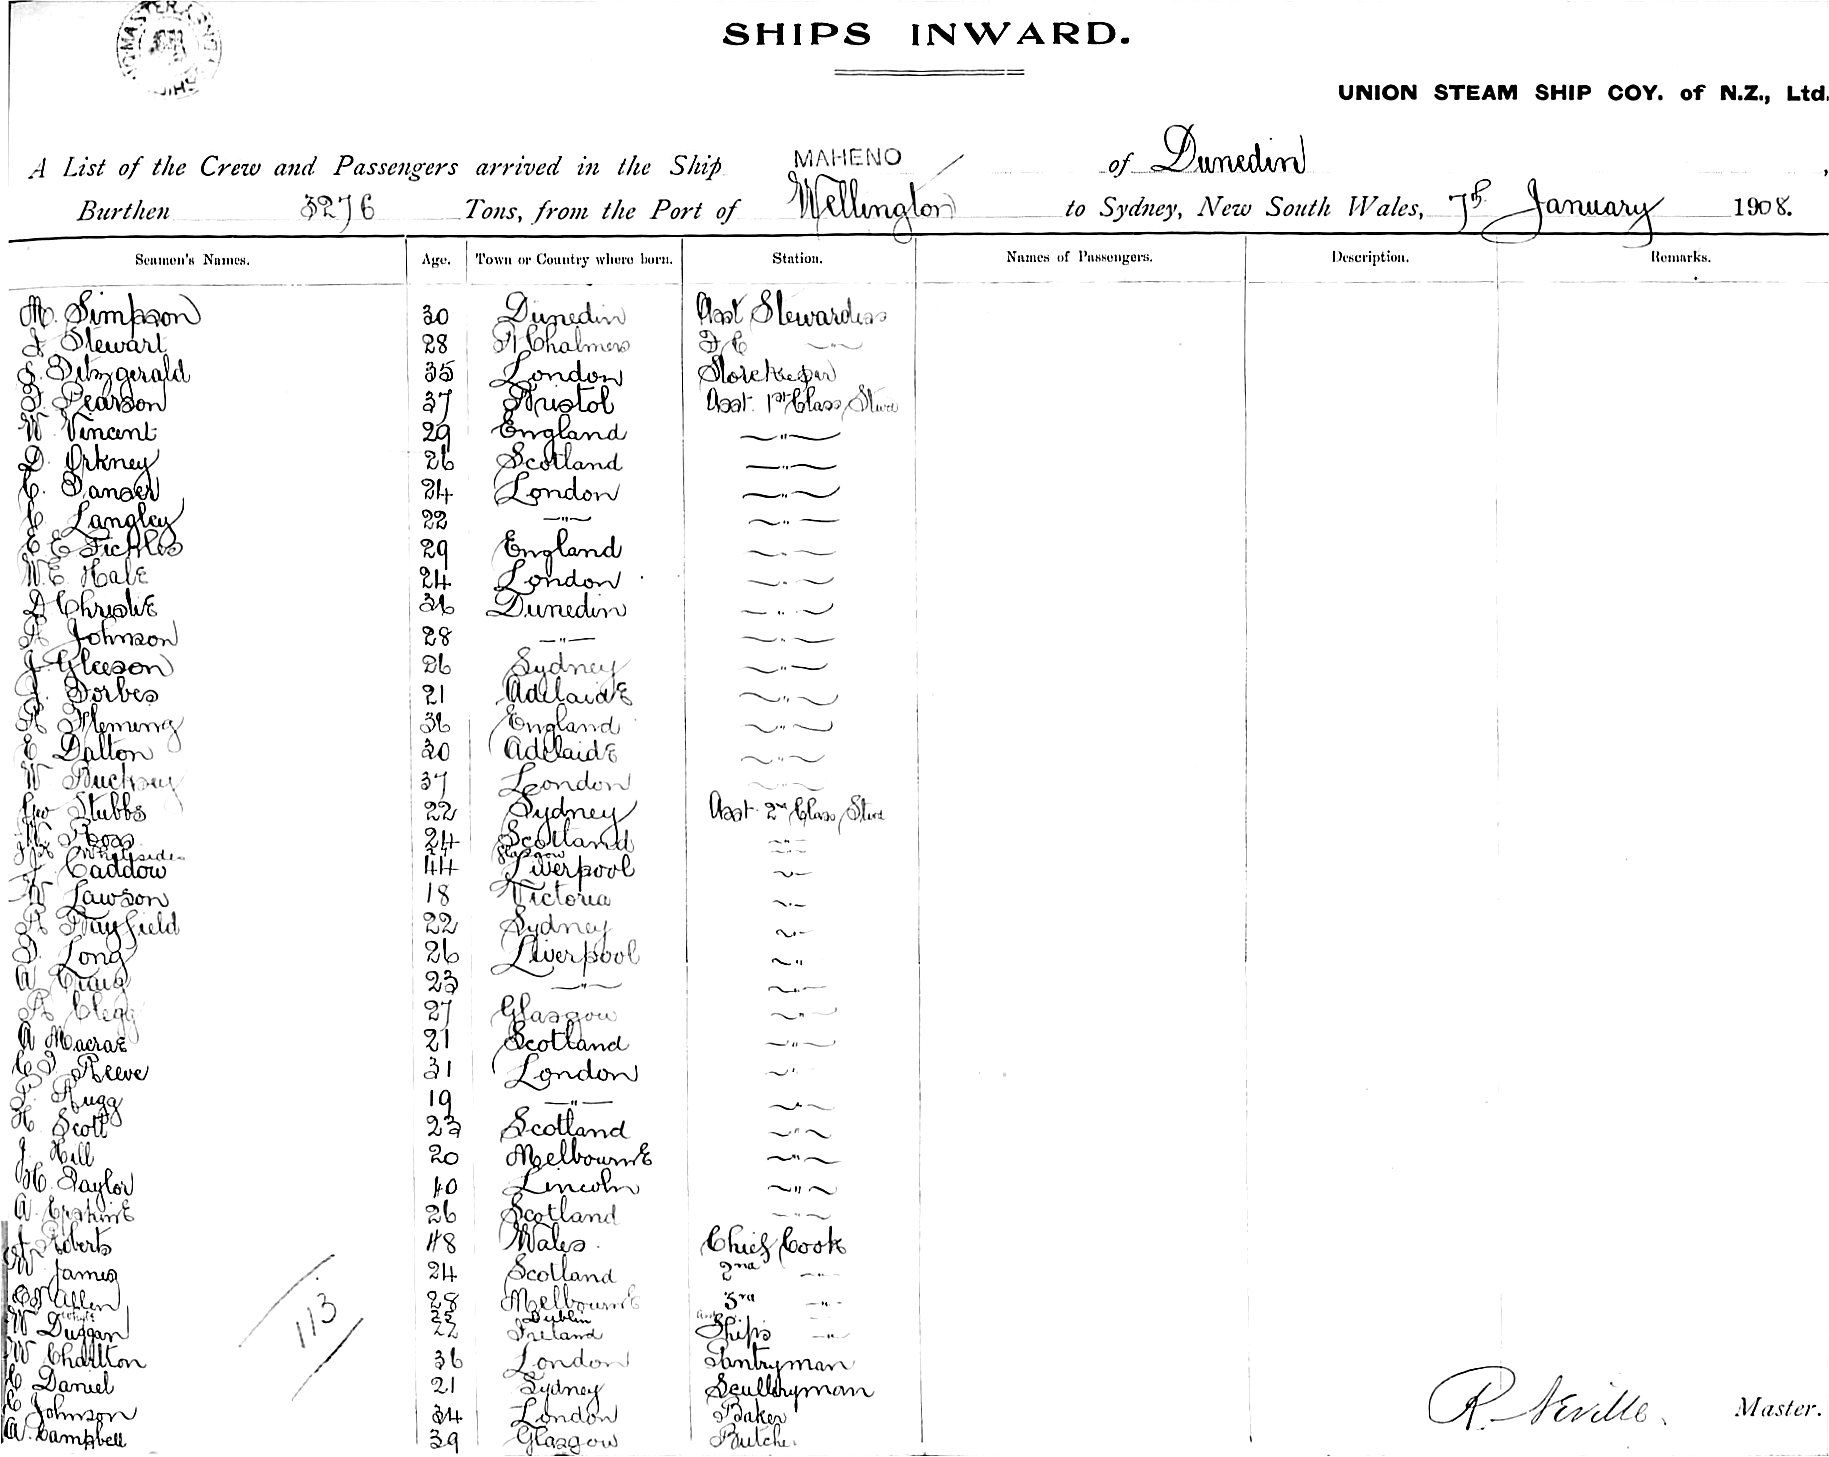 SHIPS INWARD.
UNION STEAM SHIP COY. of N.Z., Ltd.
A List of the Crew and Passengers arrived in the Ship MAHENO of Dunedin,
Burthen 3276 Tons, from the Port of Wellington to Sydney, New South Wales, 7th January 1908.
Seamen's Names. Age. Town or Country where born. Station. Names of Passengers. Description. Remarks.
M. Simpson 30 Dunedin Asst Stewardess
J Stewart 28 Pt Chalmers F C —"—
J. Fitzgerald 35 London Storekeeper
F. Pearson 37 Bristol Asst. 1st Class Stwd
W. Vincent 29 England —"—
D. Orkney 26 Scotland —"—
C. 24 London —"—
C Langley 22 —"— —"—
E E Fickles 29 England —"—
W. E Hale 24 London —"—
D Christie 36 Dunedin —"—
A Johnson 28 —"— —"—
J. Gleeson 26 Sydney —"—
J. Forbes 21 Adelaide —"—
A Fleming 36 England —"—
E Dalton 30 Adelaide —"—
W 37 London —"—
Geo Stubbs 22 Sydney Asst 2nd Class Stwd
Ross 24 Scotland —"—
Whiteside Glasgow —"—
J. Caddow 44 Liverpool —"—
W Lawson 18 Victoria —"—
A Hayfield 22 Sydney —"—
Long 26 Liverpool —"
A Craig 23 —"— —"—
A Clegg 27 Glasgow —"—
A Macrae 21 Scotland —"—
C F Reeve 31 London —"
P. Rugg 19 —"— —"—
H. Scott 23 Scotland —"—
J. Hill 20 Melbourne —"—
H. Taylor 40 Lincoln —"—
A. Erskine 26 Scotland —"—
Roberts 48 Wales. Chief Cook
W James 24 Scotland 2nd —"—
Allen 28 Melbourne 3rd —"—
Whyte 25 Dublin Asst
W Duggan 22 Ireland Ships —"—
W Charlton 36 London Pantryman
C Daniel 21 Sydney Sculleryman
C Johnson 34 London Baker
A. Campbell 39 Glasgow Butcher
113
R. Neville. Master.